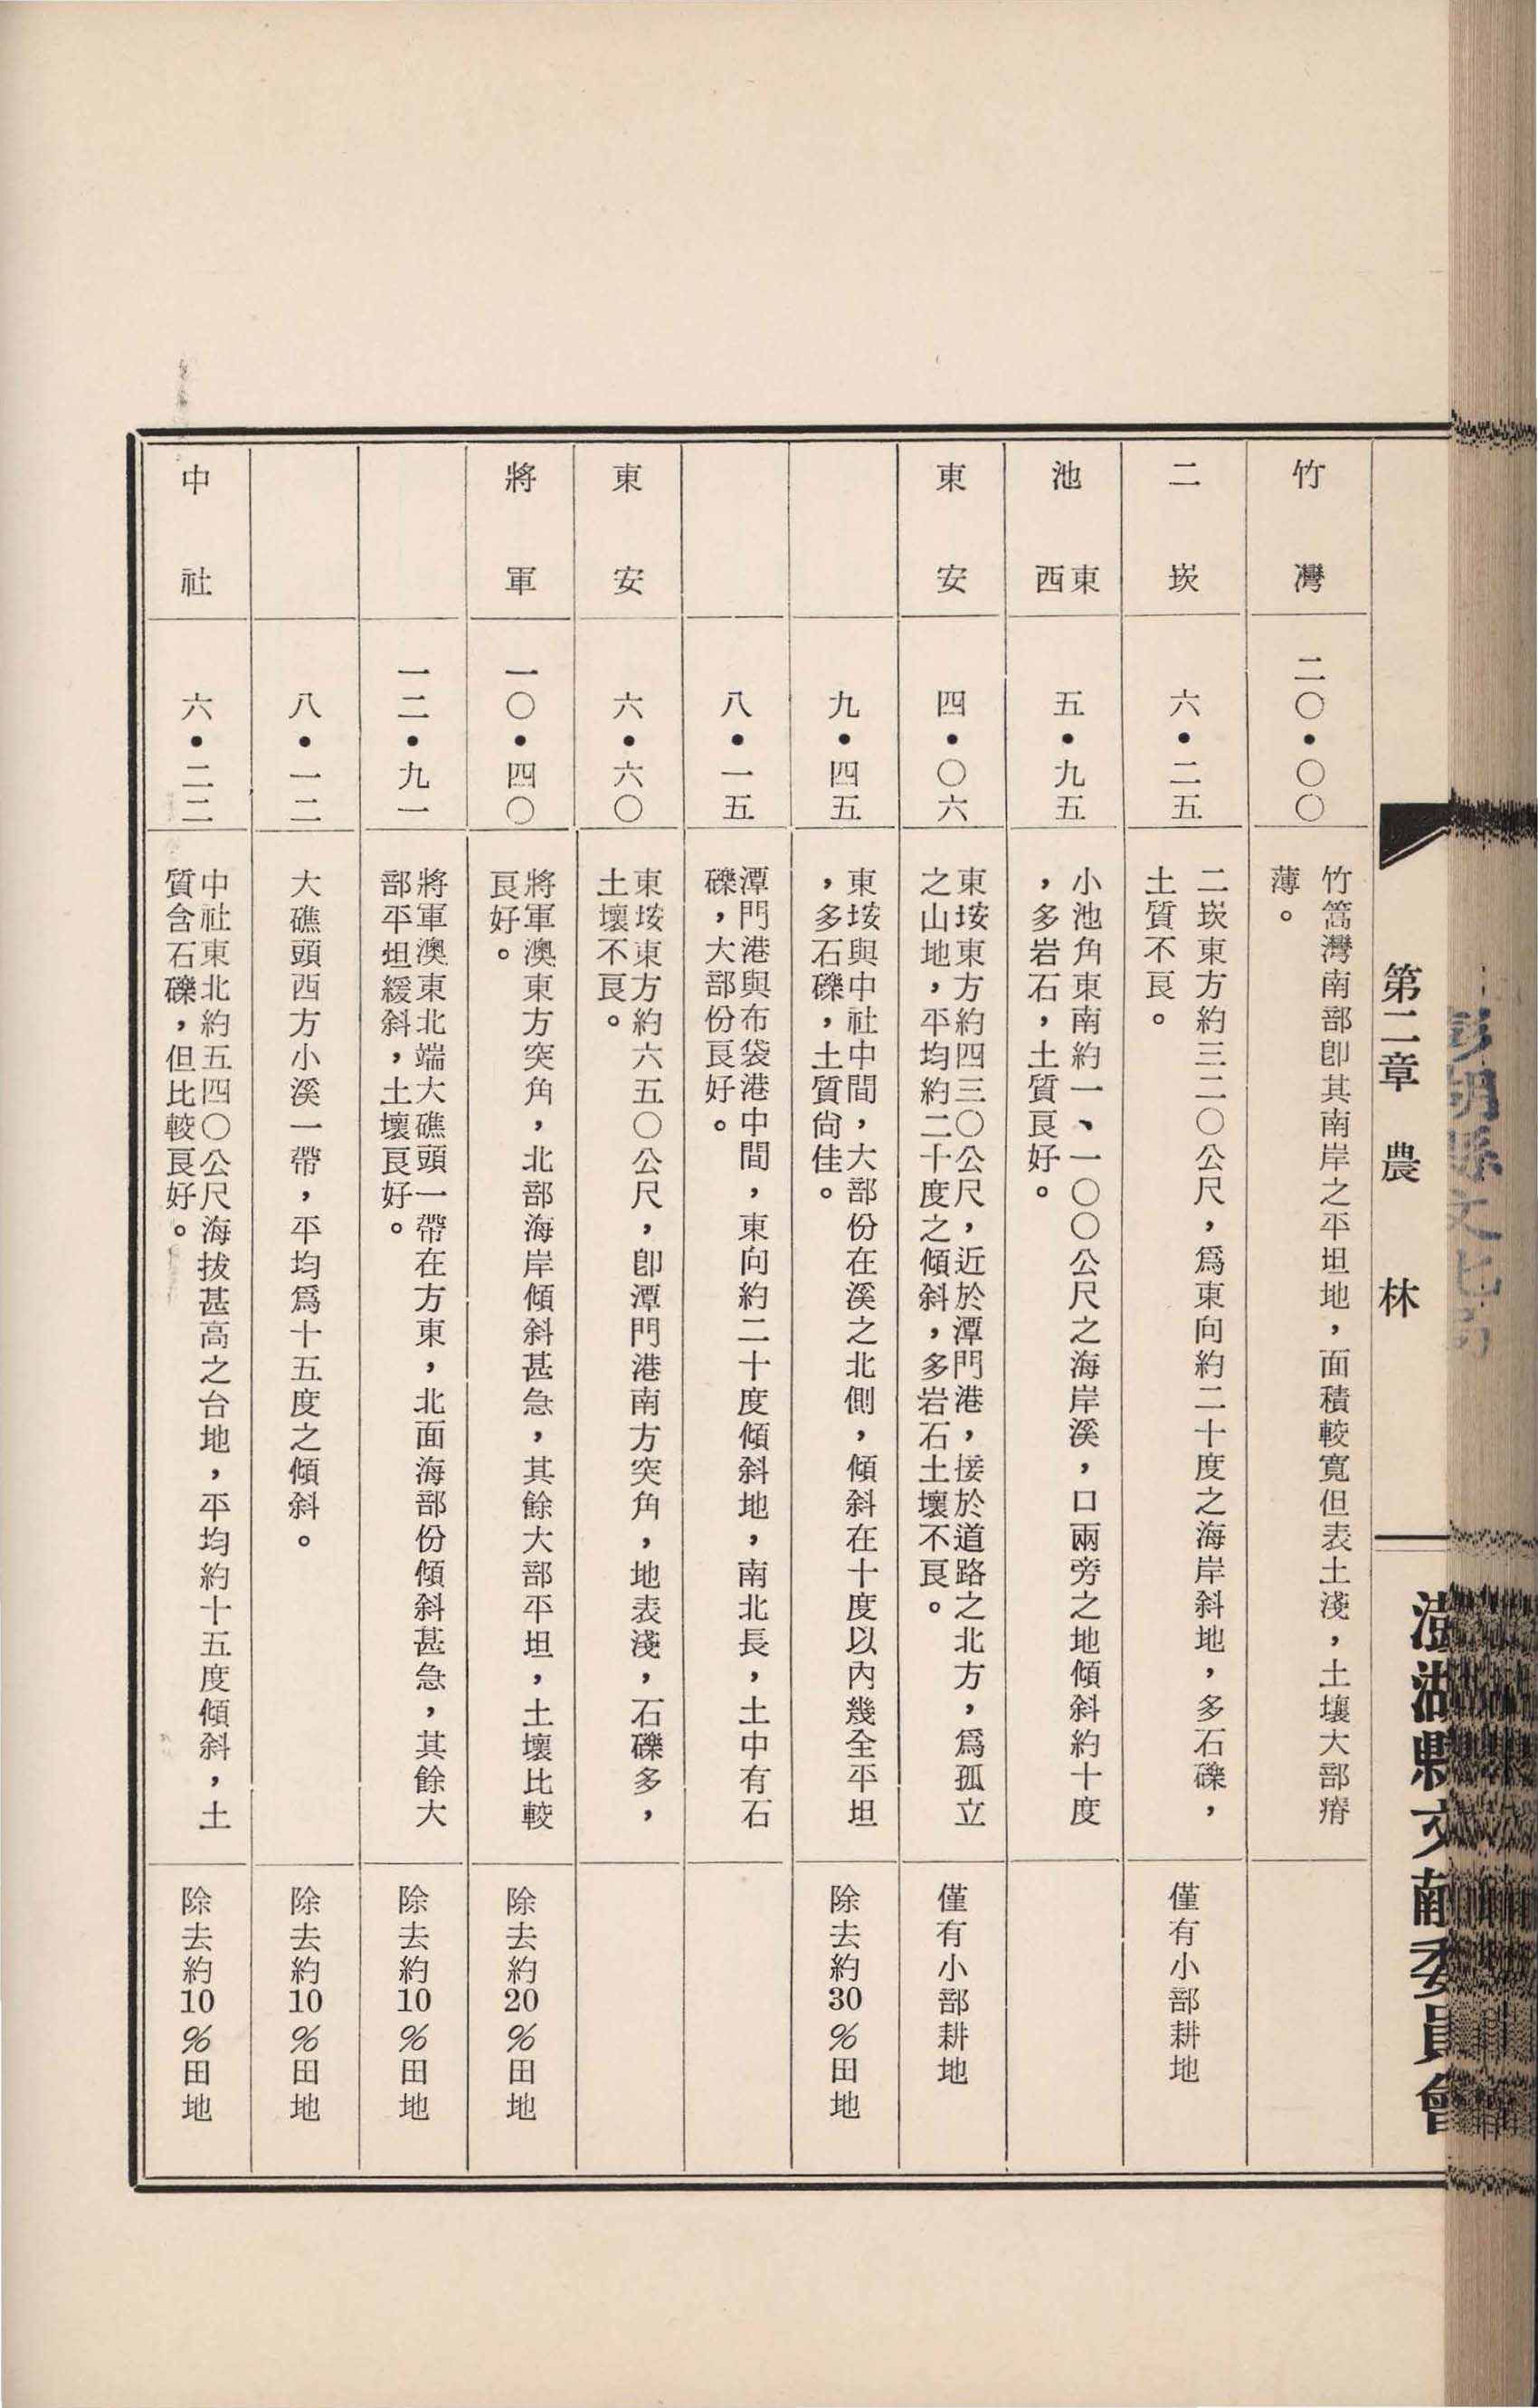 第二章 農 林
澎湖縣文献委員會
竹灣
二〇・〇〇
竹篙灣南部卽其南岸之平坦地，面積較寬但表土淺，土壤大部瘠
薄。
二崁
六・二五
二崁東方約三二〇公尺，爲東向約二十度之海岸斜地，多石礫，
土質不良。
僅有小部耕地
池東
西
五・九五
小池角東南約一、一〇〇公尺之海岸溪，口兩旁之地傾斜約十度
，多岩石，土質良好。
東安
四・〇六
東垵東方約四三〇公尺，近於潭門港，接於道路之北方，爲孤立
之山地，平均約二十度之傾斜，多岩石土壤不良。
僅有小部耕地
九・四五
東垵與中社中間，大部份在溪之北側，傾斜在十度以內幾全平坦
，多石礫，土質尙佳。
除去約30%田地
八・一五
潭門港與布袋港中間，東向約二十度傾斜地，南北長，土中有石
礫，大部份良好。
東安
六・六〇
東垵東方約六五〇公尺，卽潭門港南方突角，地表淺，石礫多，
土壤不良。
將軍
一〇・四〇
將軍澳東方突角，北部海岸傾斜甚急，其餘大部平坦，土壤比較
良好。
除去約20%田地
一二・九一
將軍澳東北端大礁頭一帶在方東，北面海部份傾斜甚急，其餘大
部平坦緩斜，土壤良好。
除去約10%田地
八・一二
大礁頭西方小溪一帶，平均爲十五度之傾斜。
除去約10%田地
中社
六・二二
中社東北約五四〇公尺海拔甚高之台地，平均約十五度傾斜，土
質含石礫，但比較良好。
除去約10%田地